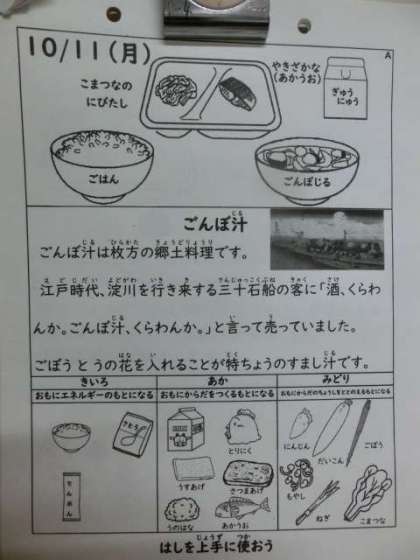 10/11(月)
A
こまつなの
にびたし
やきざかな
(あかうお)
ぎゅう
にゅう
ごはん
ごんぼじる
ごんぼ汁
ごんぼ汁は枚方の郷土料理です。
江戸時代、淀川を行き来する三十石船の客に「酒、くらわ
んか。ごんぼ汁、くらわんか。」と言って売っていました。
ごぼうとうの花を入れることが特ちょうのすまし汁です。
きいろ
あか
みどり
おもにエネルギーのもとになる
おもにからだをつくるもとになる
おもにからだのちょうしをととのえるもとになる
さとう
とりにく
にんじん
だいこん
ごぼう
うすあげ
さつまあげ
でんぷん
もやし
うのはな
あかうお
ねぎ
こまつな
はしを上手に使おう